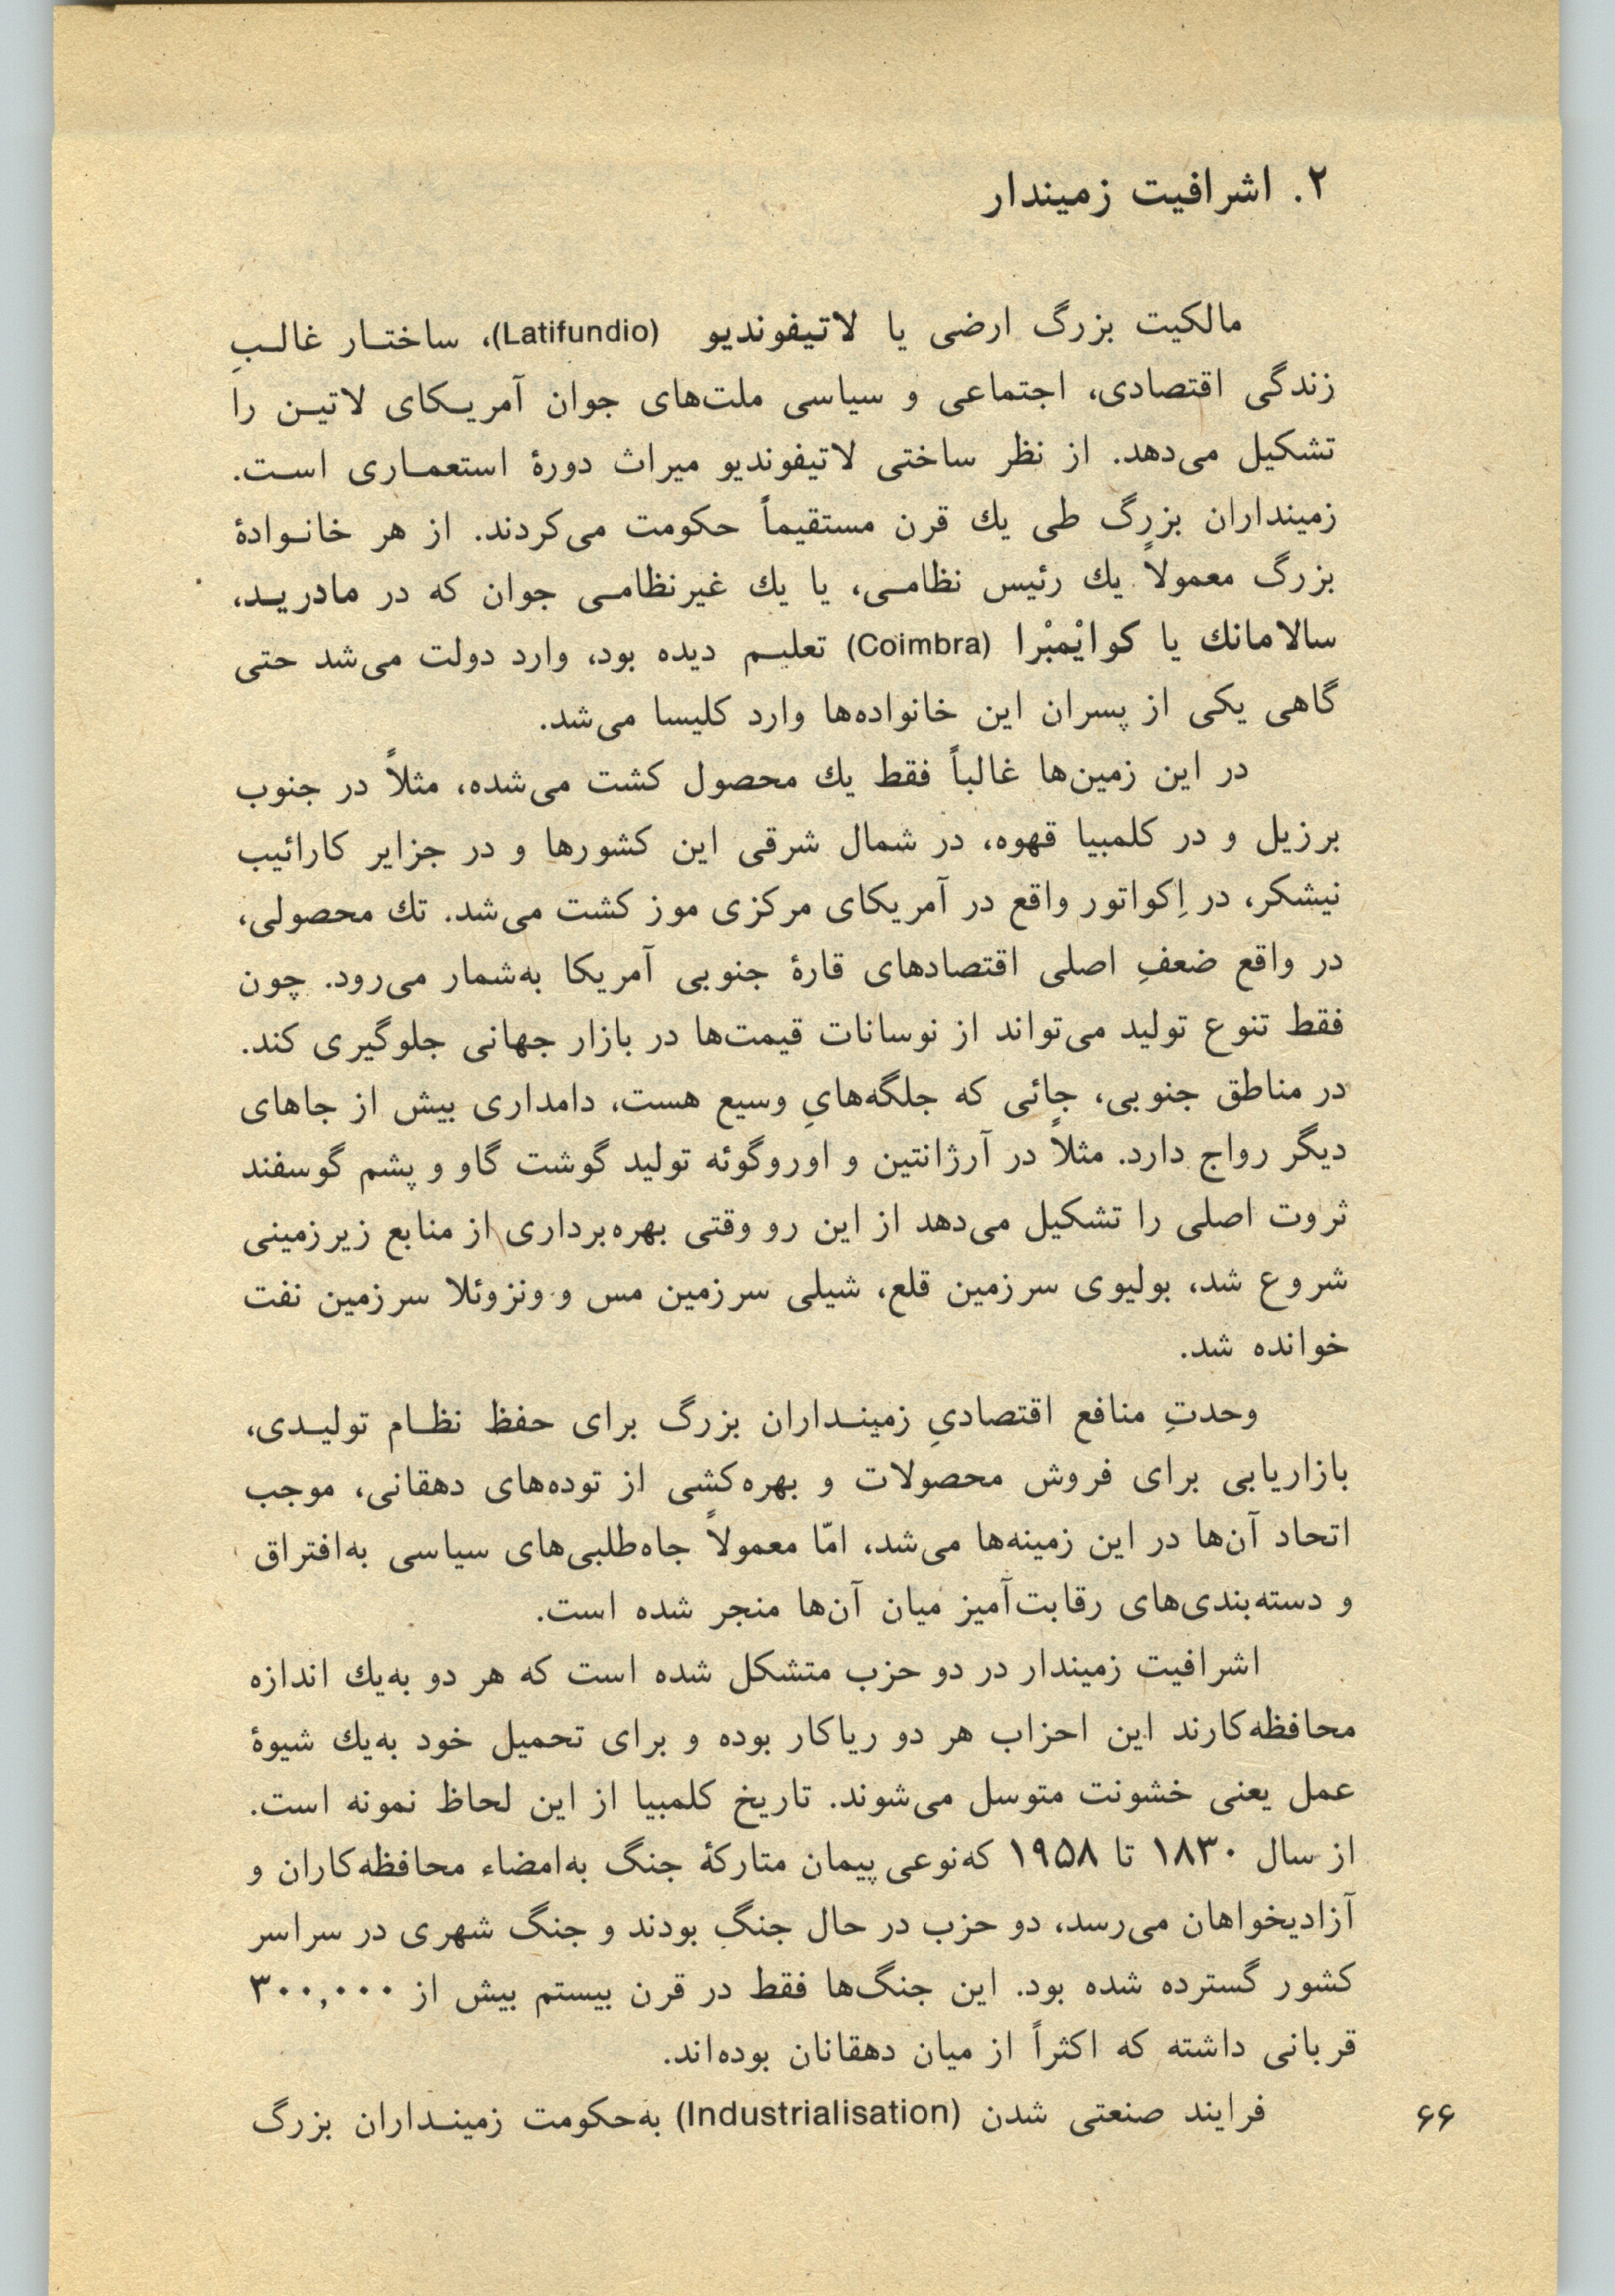 ۲. اشرافیت زمیندار
مالکیت بزرگ ارضی یا لاتیفوندیو (Latifundio)، ساختار غالبِ
زندگی اقتصادی، اجتماعی و سیاسی ملت‌های جوان آمریکای لاتین را
تشکیل می‌دهد. از نظر ساختی لاتیفوندیو میراث دورهٔ استعماری است.
زمینداران بزرگ طی یك قرن مستقیماً حکومت می‌کردند. از هر خانوادهٔ
بزرگ معمولاً یك رئیس نظامی، یا یك غیرنظامی جوان که در مادرید،
سالامانك یا کوایْمبْرا (Coimbra) تعلیم دیده بود، وارد دولت می‌شد حتی
گاهی یکی از پسران این خانواده‌ها وارد کلیسا می‌شد.
در این زمین‌ها غالباً فقط یك محصول کشت می‌شده، مثلاً در جنوب
برزیل و در کلمبیا قهوه، در شمال شرقی این کشورها و در جزایر کارائیب
نیشکر، در اِکواتور واقع در آمریکای مرکزی موز کشت می‌شد. تك محصولی،
در واقع ضعفِ اصلی اقتصادهای قارهٔ جنوبی آمریکا به‌شمار می‌رود. چون
فقط تنوع تولید می‌تواند از نوسانات قیمت‌ها در بازار جهانی جلوگیری کند.
در مناطق جنوبی، جائی که جلگه‌هایِ وسیع هست، دامداری بیش از جاهای
دیگر رواج دارد. مثلاً در آرژانتین و اوروگوئه تولید گوشت گاو و پشم گوسفند
ثروت اصلی را تشکیل می‌دهد از این رو وقتی بهره‌برداری از منابع زیرزمینی
شروع شد، بولیوی سرزمین قلع، شیلی سرزمین مس و ونزوئلا سرزمین نفت
خوانده شد.
وحدتِ منافع اقتصادیِ زمینداران بزرگ برای حفظ نظام تولیدی،
بازاریابی برای فروش محصولات و بهره‌کشی از توده‌های دهقانی، موجب
اتحاد آن‌ها در این زمینه‌ها می‌شد، امّا معمولاً جاه‌طلبی‌های سیاسی به‌افتراق
و دسته‌بندی‌های رقابت‌آمیز میان آن‌ها منجر شده است.
اشرافیت زمیندار در دو حزب متشکل شده است که هر دو به‌یك اندازه
محافظه‌کارند این احزاب هر دو ریاکار بوده و برای تحمیل خود به‌یك شیوهٔ
عمل یعنی خشونت متوسل می‌شوند. تاریخ کلمبیا از این لحاظ نمونه است.
از سال ۱۸۳۰ تا ۱۹۵۸ که‌نوعی پیمان متارکهٔ جنگ به‌امضاء محافظه‌کاران و
آزادیخواهان می‌رسد، دو حزب در حال جنگ بودند و جنگ شهری در سراسر
کشور گسترده شده بود. این جنگ‌ها فقط در قرن بیستم بیش از ۳۰۰,۰۰۰
قربانی داشته که اکثراً از میان دهقانان بوده‌اند.
فرایند صنعتی شدن (Industrialisation) به‌حکومت زمینداران بزرگ
۶۶